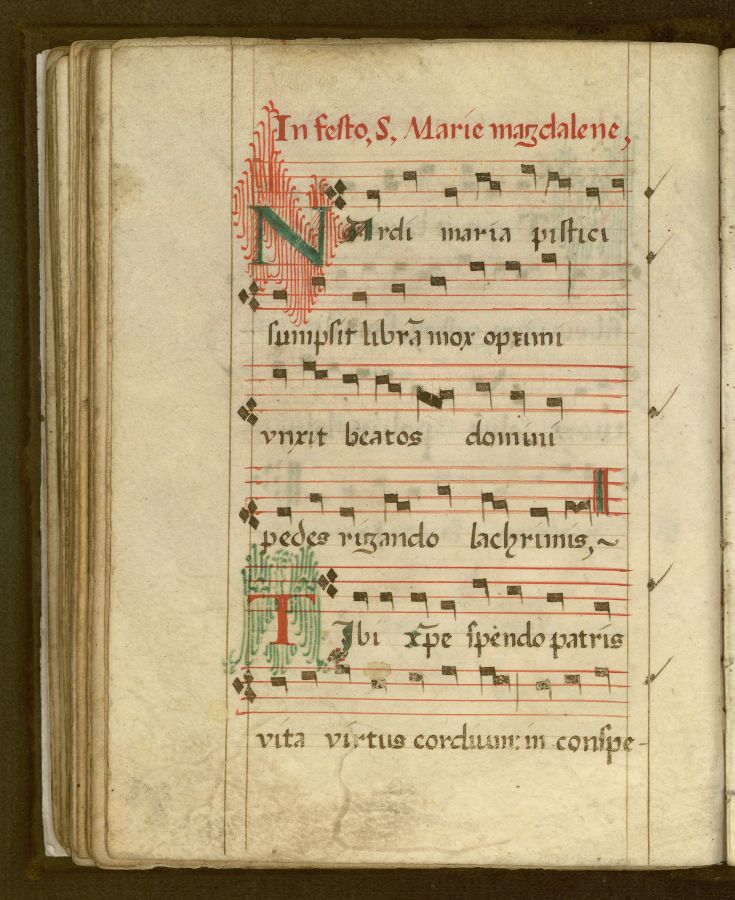 In festo, S, Marie magdalene,
NArdi maria pistici
sumpsit librā mox optimi
vnxit beatos domini
pedes rigando lachrimis,~
TIbi xp̄e splendo patris
vita virtus cordium: in conspe-